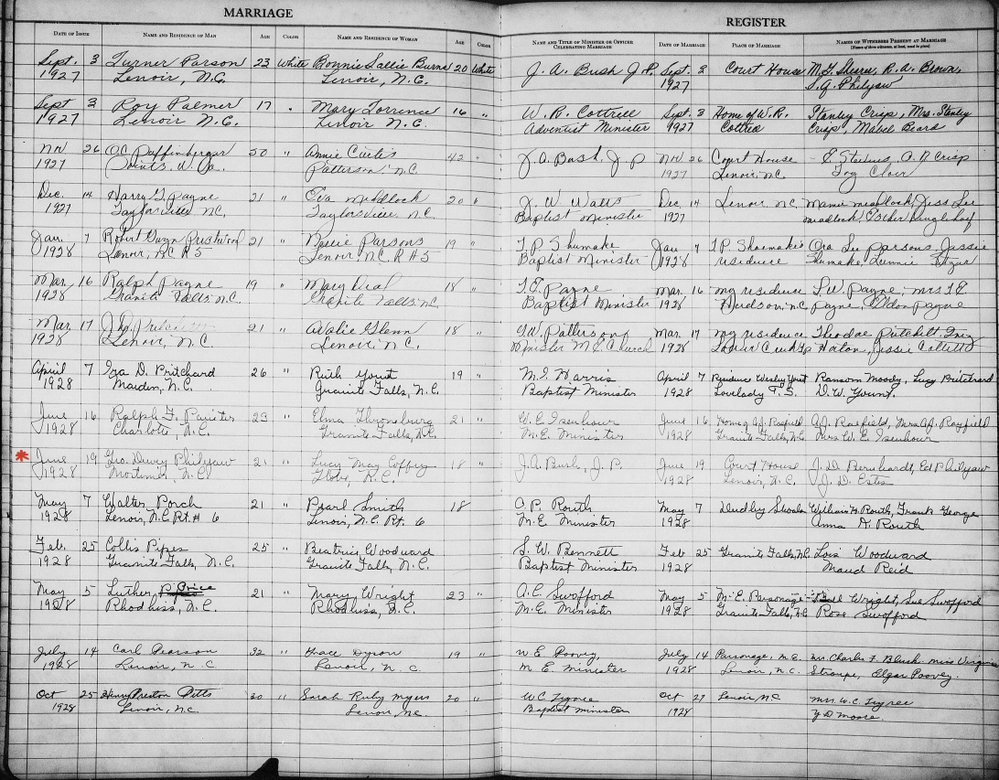 MARRIAGE REGISTER
DATE OF ISSUE NAME AND RESIDENCE OF MAN AGE COLOR NAME AND RESIDENCE OF WOMAN AGE COLOR NAME AND TITLE OF MINISTER OR OFFICER CELEBRATING MARRIAGE DATE OF MARRIAGE PLACE OF MARRIAGE NAMES OF WITNESSES PRESENT AT MARRIAGE
Sept. 3 Turner Parson 23 White Bonnie Sallie Burns 20 White J. A. Bush J. P. Sept. 3 Court House R. A. Brown,
1927 Lenoir, N.C. Lenoir, N.C. 1927 Philyaw
Sept 3 Roy Palmer 17 " Mary Torrence 16 " W. R. Cottrell Sept. 3 Home of W. R. Stanley Crisp, Mrs. Stanley
1927 Lenoir N.C. Lenoir N.C. Adventist Minister 1927 Cottrell Crisp, Mabel Beard
Nov 26 O.C. Poffinberger 50 " Annie Curtis 42 " J. A. Bush, J P Nov 26 Court House
1927 Patterson N.C. 1927 Lenoir, N.C.
Dec. 14 Harry G Payne 21 " Eva 20 " J. W. Watts Dec, 14 Lenoir N.C. Jess Lee
1927 Taylorsville N.C. Taylorsville, N.C. Baptist Minister 1927
Jan. 7 Robert Gwyn Prestwood 21 " Nellie Parsons 19 " T. P. Shumake Jan. 7 T.P. Shoemake's Ora Lee Parsons, Jessie
1928 Lenoir, N.C R 5 Lenoir N.C. R #5 Baptist Minister 1928 residence Shumake,
Mar. 16 Ralph Payne 19 " Mary 18 " T. E. Payne Mar. 16 my residence Payne, Mrs T. E.
1928 Granite Falls N.C. Granite Falls N.C. Baptist Minister 1928 Hudson, N.C. Payne, Eldon Payne
Mar. 17 21 " Glenn 18 " Patterson Mar. 17 my residence Pritchett,
1928 Lenoir, N.C. Lenoir, N.C. Minister M E Church 1928 Lower Creek Tp
April 7 Ira D. Pritchard 26 " Ruth Yount 19 " M. I. Harris April 7 Residence Wesley Yount Ransom Moody, Lucy Pritchard
1928 Maiden, N.C. Granite Falls, N.C. Baptist Minister 1928 Lovelady T. S. D. W. Yount.
June 16 Ralph F. Painter 23 " Elma Throneburg 21 " W. E. Isenhour June 16 Rayfield
1928 Charlotte, N.C. Granite Falls, N.C. M. E. Minister 1928 Granite Falls, N.C. Mrs W. E. Isenhour
* June 19 Geo. Dewey Philyaw 21 " Lucy May Coffey 18 " J. A. Bush, J. P. June 19 Court House J. D. Bernhardt, Ed Philyaw
1928 Mortimer, N.C. Globe, N.C. 1928 Lenoir, N.C. J. D. Estes
May 7 Walter Porch 21 " Pearl Smith 18 A. P. Routh May 7 Dudley Shoals William H. Routh, Frank George
1928 Lenoir N.C. Rt. # 6 Lenoir, N.C. Rt. 6 M. E. Minister 1928 Anna D. Routh
Feb. 25 Collis Pipes 25 " Beatrice Woodward 21 " S. W. Bennett Feb 25 Granite Falls, N.C. Lois Woodward
1928 Granite Falls, N.C. Granite Falls, N.C. Baptist Minister 1928 Maud Reid
May 5 Luther Price 21 " Mary Wright 23 " A. C. Swofford May 5 M. E. Parsonage Wright, Sue Swofford
1928 Rhodhiss, N.C. Rhodhiss, N.C. M. E. Minister 1928 Granite Falls, N.C. Rose Swofford
July 14 Carl Pearson 22 " Grace Dyson 19 " W E Poovey July 14 Parsonage, M.E. Mr. Charles F. Blush. Miss Virginia
1928 Lenoir, N. C Lenoir, N. C M E Minister 1928 Lenoir, N.C. Poovey.
Oct 25 Henry Preston Pitts 20 " Sarah Ruby Myers 20 " W C Oct 27 Lenoir, N C Mrs. W. C.
1928 Lenoir, N.C. Lenoir N.C. Baptist Minister 1928 Moore.